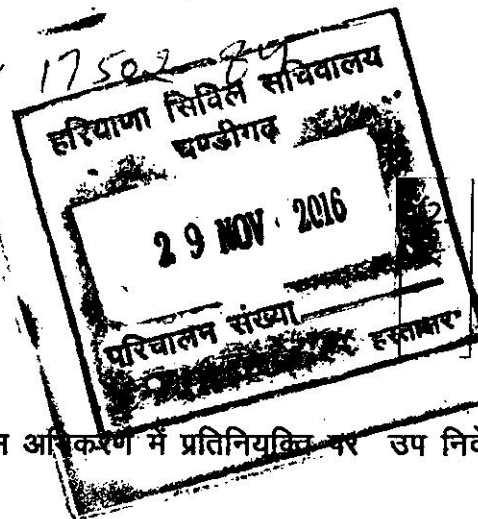 17502-84
हरियाणा सिविल सचिवालय
चण्डीगढ़
29 NOV 2016
परिचालन संख्या
हस्ताक्षर
अभिकरण में प्रतिनियुक्ति पर उप